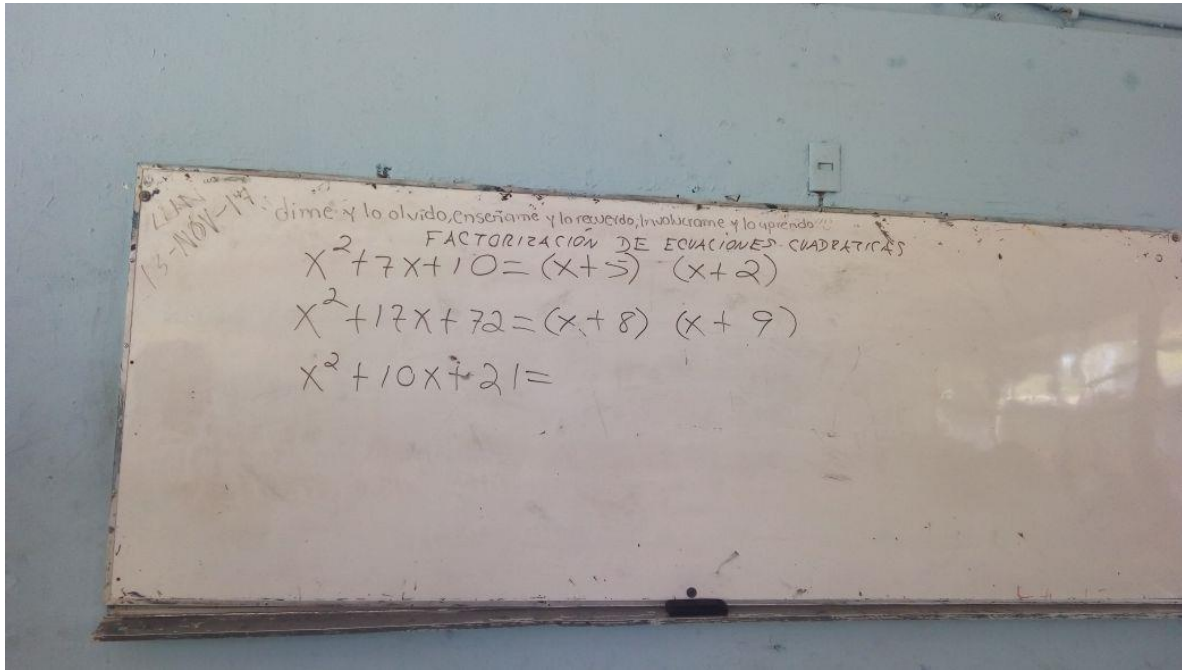 13-NOV-17
dime y lo olvido, enseñame y lo recuerdo, Involucrame y lo aprendo
FACTORIZACIÓN DE ECUACIONES CUADRATICAS
x²+7x+10=(x+5) (x+2)
x²+17x+72=(x+8) (x+9)
x²+10x+21=